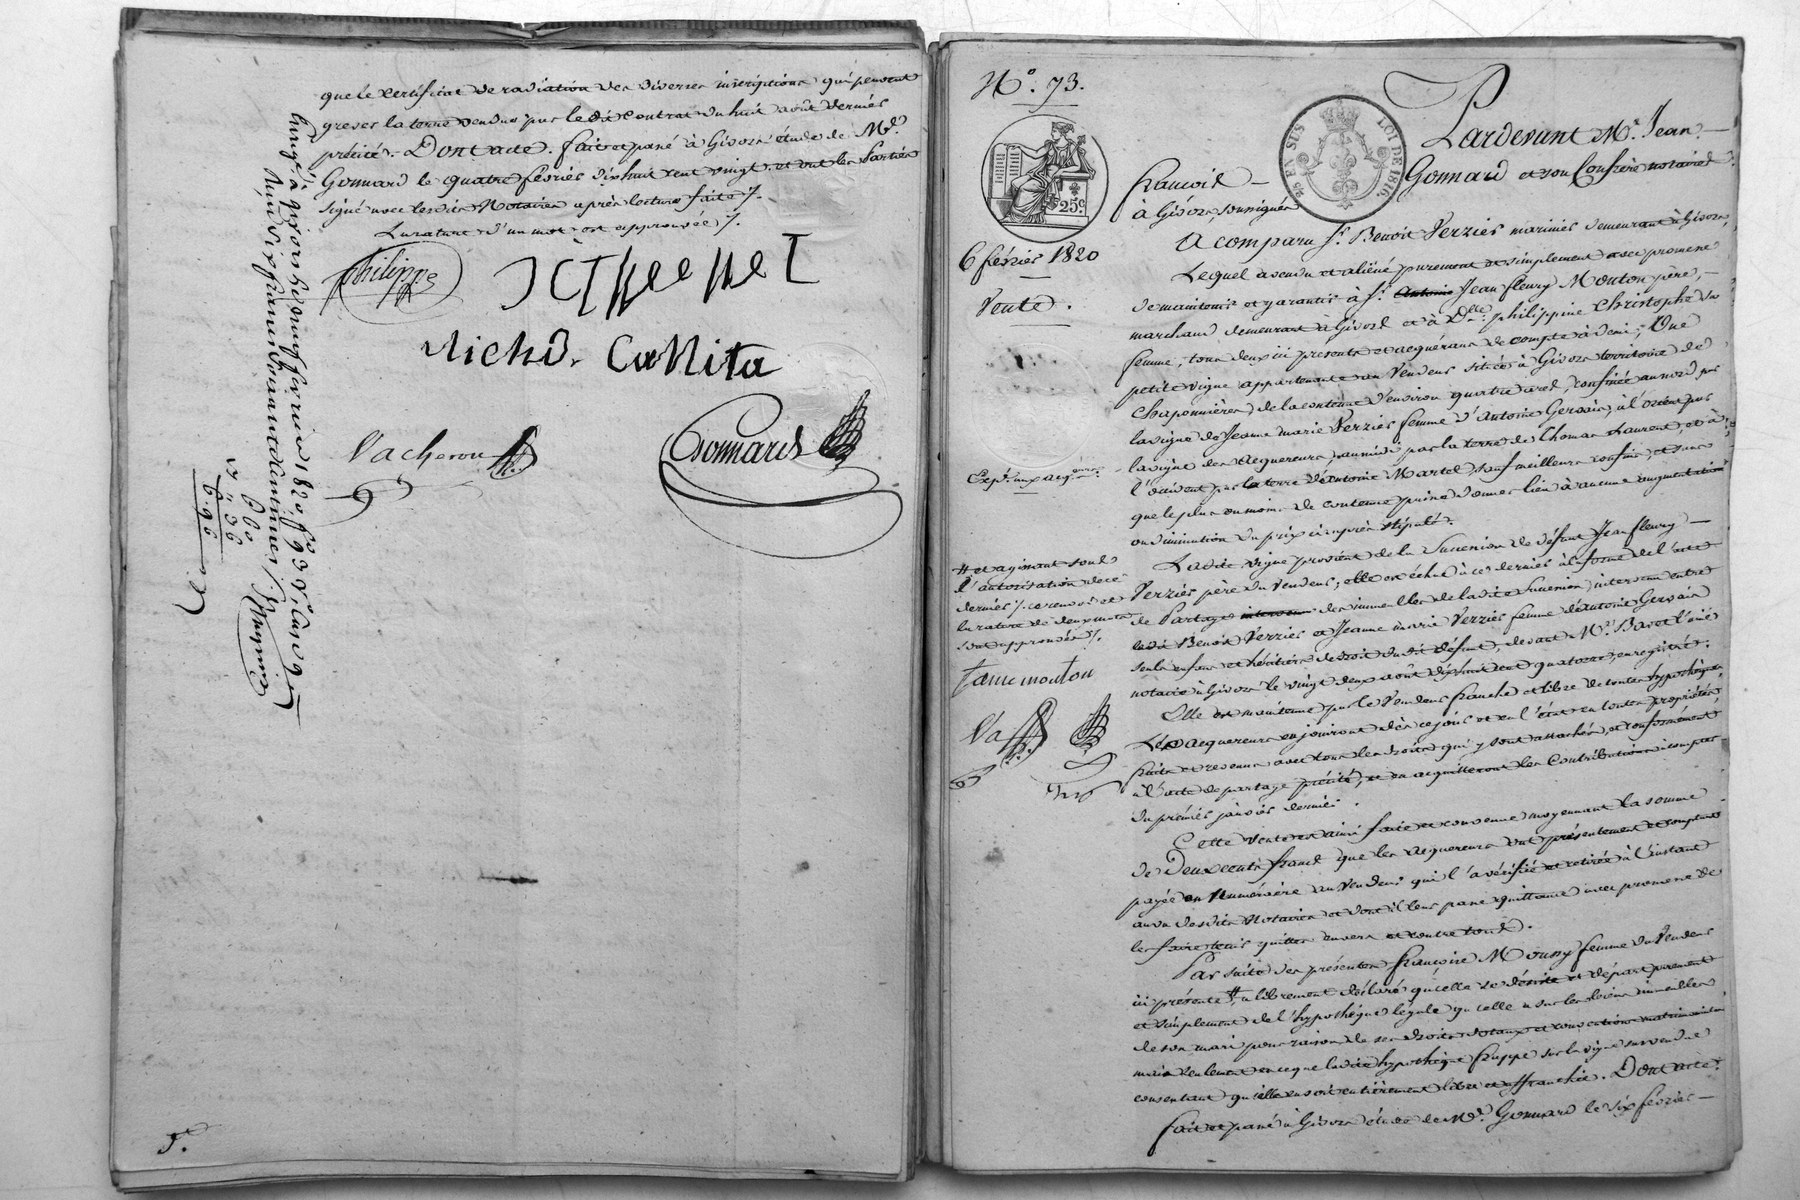 que le certificat de radiation des diverses inscriptions qui peuvent
grever la terre vendue par le dit contrat du huit août dernier
précité. Dont acte. fait et passé à Givors étude de Me.
Gonnard le quatre février dix huit cent vingt et ont les Parties
signé avec lesdits Notaires après lecture faite ./.
La rature d'un mot est approuvée ./.
philippe
Michd. Collita
Vacheron
Gonnard
Enregé. à givors le neuf février 1820, fo. 93
deux francs
6 60
" 36
6.96
5.
No. 73.
25c
EN SUS
LOI DE 1816
6 février 1820
Vente.
Pardevant Me. Jean
françois Gonnard et son Confrère notaires
à Givors, soussignés
A comparu sr. Benoît Verzier marinier demeurant à Givors,
Lequel a vendu et aliéné purement et simplement avec promesse
de maintenir et garantir à sr. Antoine Jean fleury Mouton père,
marchand demeurant à Givors et à Dlle. philippine Christophe sa
femme, tous deux ici présents et acquérans de compte à demi ; Une
petite vigne appartenante au Vendeur située à Givors territoire de
Chaponnières, de la contenue d'environ quatre ares, confinée au nord par
la vigne de Jeanne marie Verzier femme d'Antoine Gervais, à l'Orient par
la vigne des acquereurs, au midi par la terre de Thomas Laurent, et à
l'occident par la terre d'antoine Martel, sauf meilleurs confins, et sans
que le plus ou moins de contenue puisse donner lieu à aucune augmentation
ou diminution du prix ci-après stipulé.
Expn. aux acqreurs.
La dite vigne provient de la Succession de défunt Jean fleury
Verzier père du vendeur ; elle est échue à ce dernier à la forme de l'acte
de Partage des immeubles de la dite Succession, intervenu entre
ledit Benoît Verzier et Jeanne marie Verzier femme d'antoine Gervais
seuls enfans et héritiers de droit du dit défunt, devant Me. Baret l'aîné
notaire à Givors le vingt deux août dix huit cent quatorze, enregistré.
# et agissant sous
l'autorisation de ce
dernier ./. ce renvoi et
la rature de deux mots
sont approuvés ./.
fame mouton
Va
Elle est maintenue par le Vendeur franche et libre de toutes hypothèques
Les acquereurs en jouiront dès ce jour et en l'état en toutes propriétés,
fruits et revenus avec tous les droits qui y sont attachés, et conformément
à l'acte de partage précité, et en acquitteront les Contributions à compter
du premier janvier dernier.
Cette vente est ainsi faite et convenue moyennant la somme
de Deux cents francs que les acquereurs ont présentement et comptant
payée en Numéraire au Vendeur qui l'a vérifiée et retirée à l'instant
au vu desdits Notaires et dont il leur passe quittance avec promesse de
les faire tenir quittes envers et contre tous.
Par suite des présentes françoise Mouny femme du Vendeur
ici présente #, a librement déclaré qu'elle se désiste et départ purement
et simplement de l'hypothèque légale qu'elle a sur les biens immeubles
de son mari pour raison de ses droits dotaux et conventions matrimoniales
mais seulement en ce que ladite hypothèque frappe sur la vigne sus vendue
consentant qu'elle en soit entièrement libre et affranchie. Dont acte.
fait et passé à Givors étude de Me. Gonnard le six février